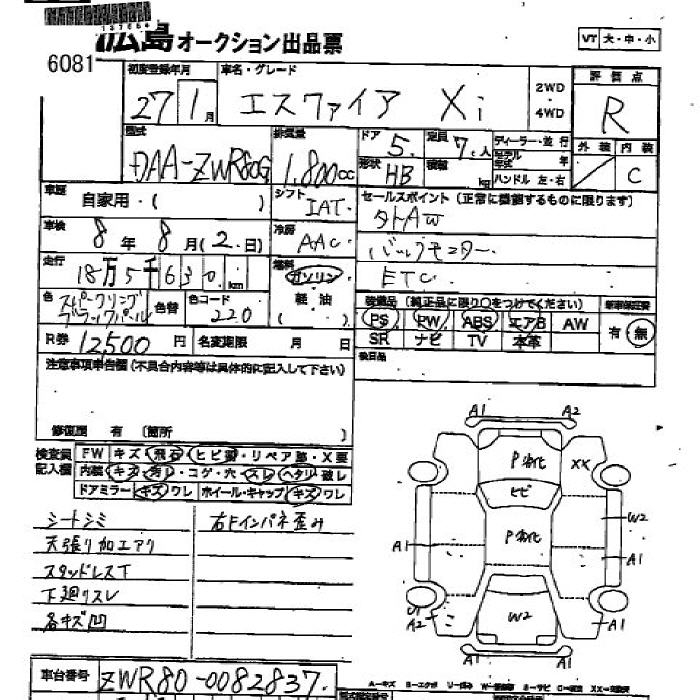 137664
広島 オークション出品票
VT 大・中・小
6081
初度登録年月
27 1月
車名・グレード
エスクァイア Xi
2WD・4WD
評価点
R
型式
DAA-ZWR80G
排気量
1,800cc
ドア 5
定員 7人
形状 HB
積載 kg
ディーラー・並行
モデル年式 年
ハンドル 左・右
外装 内装
C
車歴
自家用・( )
シフト
IAT
セールスポイント(正常に機能するものに限ります)
タトAW
バックモニター
ETC
車検
8年8月(2日)
冷房
AAC
走行
18万5千630km
燃料
ガソリン
軽油
色
スパークリングブラックパール
色替
色コード
220
装備品(純正品に限り○をつけてください)
PS PW ABS エアB AW
SR ナビ TV 本革
新車保証書
有・無
R券 12,500円
名変期限 月 日
後日品
注意事項申告欄(不具合内容等は具体的に記入して下さい)
修復歴 有 〔箇所 〕
検査員記入欄
FW キズ・飛石・ヒビ・リペア跡・X要
内装 キズ・汚れ・コゲ・穴・スレ・ヘタリ・破レ
ドアミラー キズ・ワレ ホイール・キャップ キズ・ワレ
シートシミ
右Fインパネ歪み
天張り加工アリ
スタッドレスT
下廻りスレ
各キズ凹
A1 A2
P劣化 XX
ヒビ
W2
P劣化
A1 A1
A2 W2
A1 A1
車台番号 ZWR80-0082837